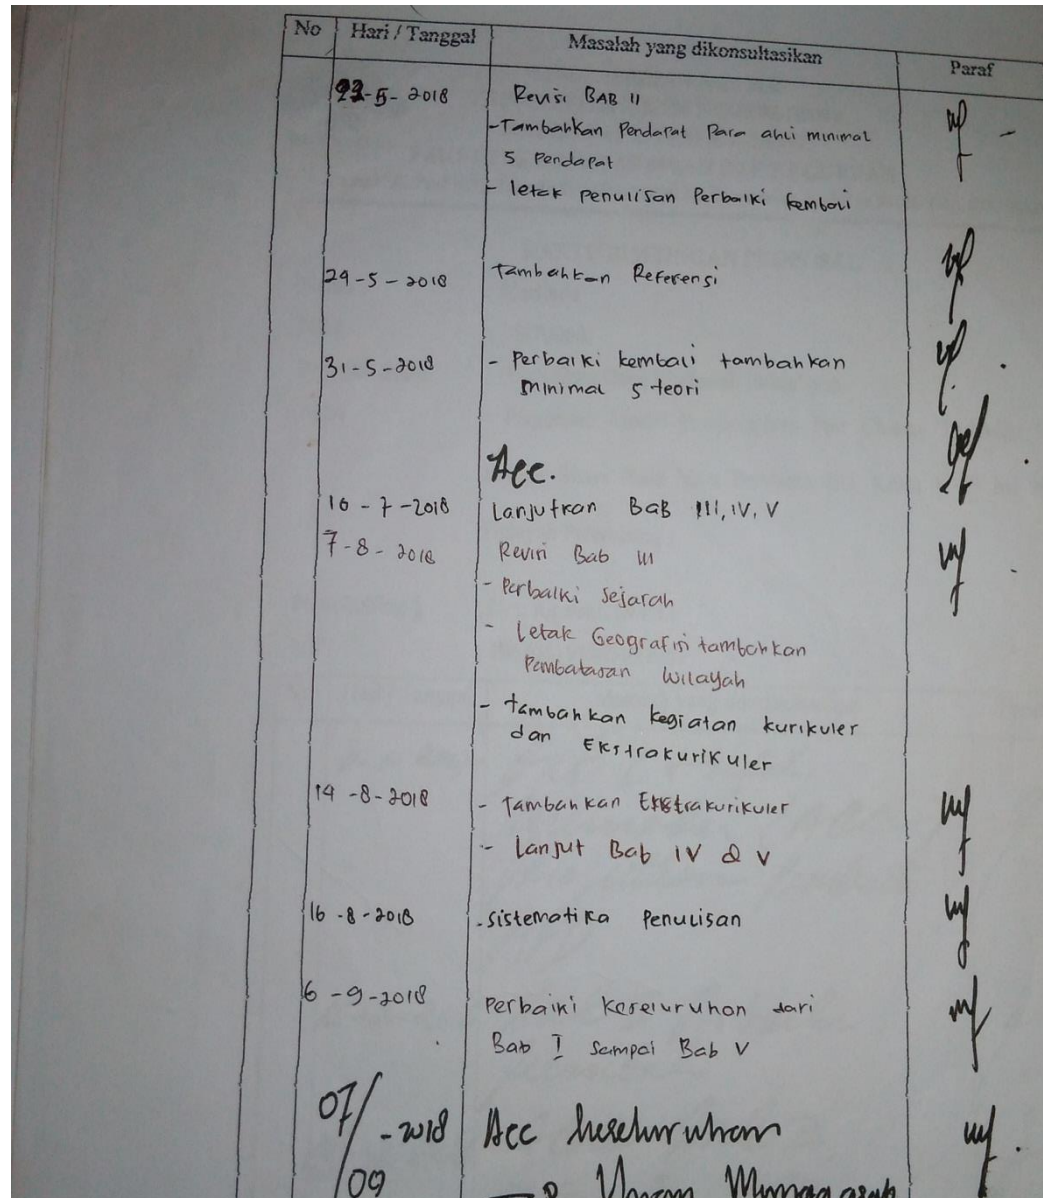 No Hari / Tanggal Masalah yang dikonsultasikan Paraf
23-5-2018 Revisi BAB II
-Tambahkan Pendapat Para ahli minimal
5 Pendapat
- letak penulisan Perbaiki kembali
29-5-2018 Tambahkan Referensi
31-5-2018 - Perbaiki kembali tambahkan
minimal 5 teori
Acc.
16-7-2018 Lanjutkan BaB III, IV, V
7-8-2018 Revisi Bab III
- Perbaiki Sejarah
- Letak Geografisi tambahkan
Pembatasan Wilayah
- tambahkan kegiatan kurikuler
dan Ekstrakurikuler
14-8-2018 - Tambahkan Ekstrakurikuler
- Lanjut Bab IV & V
16-8-2018 - Sistematika Penulisan
6-9-2018 Perbaiki Keseluruhan dari
Bab I Sampai Bab V
07/09-2018 Acc keseluruhan